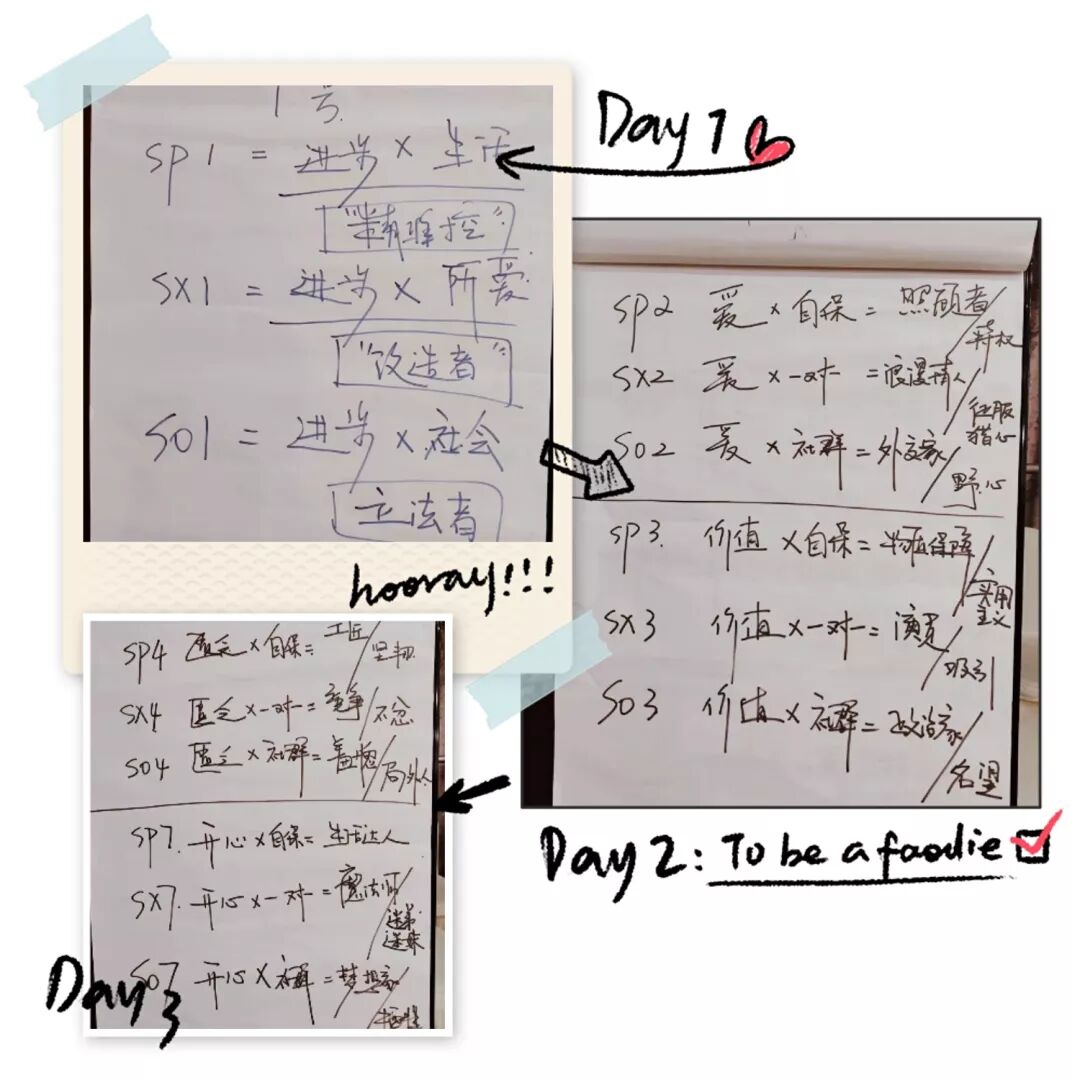 Day 1
1号
SP1 = 进步 × 生活
SX1 = 进步 × 所爱
"改造者"
SO1 = 进步 × 社会
立法者
hooray!!!
SP2 爱 × 自保 = 照顾者/特权
SX2 爱 × 一对一 = 浪漫情人/征服猎心
SO2 爱 × 社群 = 外交家/野心
SP3. 价值 × 自保 = 物质保障/实用主义
SX3 价值 × 一对一 = 演员/吸引
SO3 价值 × 社群 = 政治家/名望
Day 2: To be a foodie
SP4 匮乏 × 自保 = 工匠/坚韧
SX4 匮乏 × 一对一 = 竞争/不忿
SO4 匮乏 × 社群 = 羞愧/局外人
SP7. 开心 × 自保 = 生活达人
SX7. 开心 × 一对一 = 魔法师/迷弟迷妹
SO7 开心 × 社群 = 梦想家/牺牲
Day 3